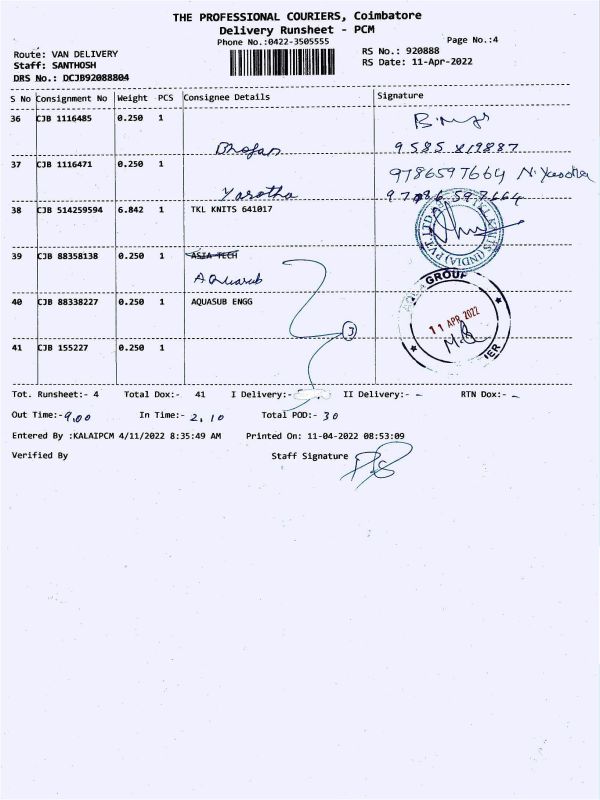 THE PROFESSIONAL COURIERS, Coimbatore
Delivery Runsheet - PCM
Phone No.:0422-3505555
Page No.:4
Route: VAN DELIVERY
RS No.: 920888
Staff: SANTHOSH
RS Date: 11-Apr-2022
DRS No.: DCJB92088804
S No Consignment No Weight PCS Consignee Details Signature
36 CJB 1116485 0.250 1
9585819887
37 CJB 1116471 0.250 1
9786597664 N. Yasotha
Yasotha
9786597664
38 CJB 514259594 6.842 1 TKL KNITS 641017
TKL KNITS (INDIA) PVT. LTD
39 CJB 88358138 0.250 1 ASIA TECH
Aquasub
GROUP
40 CJB 88338227 0.250 1 AQUASUB ENGG
11 APR 2022
41 CJB 155227 0.250 1
Tot. Runsheet:- 4 Total Dox:- 41 I Delivery:- II Delivery:- - RTN Dox:- -
Out Time:- 9.00 In Time:- 2.10 Total POD:- 30
Entered By :KALAIPCM 4/11/2022 8:35:49 AM Printed On: 11-04-2022 08:53:09
Verified By Staff Signature